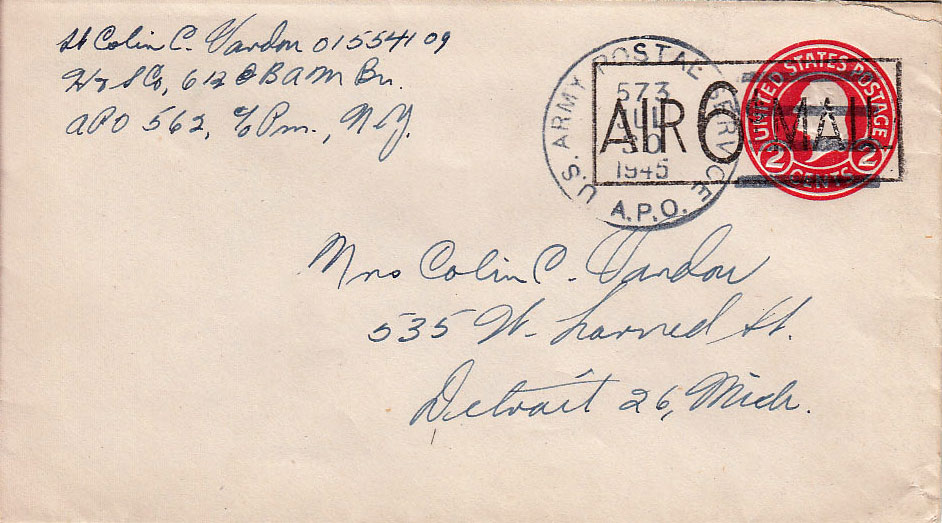 Lt Colin C. Vardon 01554109
Hq & S Co, 612 O B A M Bn.
APO 562, c/o Pm., N.Y.
U.S. ARMY POSTAL SERVICE
573
JUL
30
1945
A.P.O.
AIR 6¢ MAIL
UNITED STATES POSTAGE
2 CENTS 2
Mrs Colin C. Vardon
535 W. Larned St.
Detroit 26, Mich.